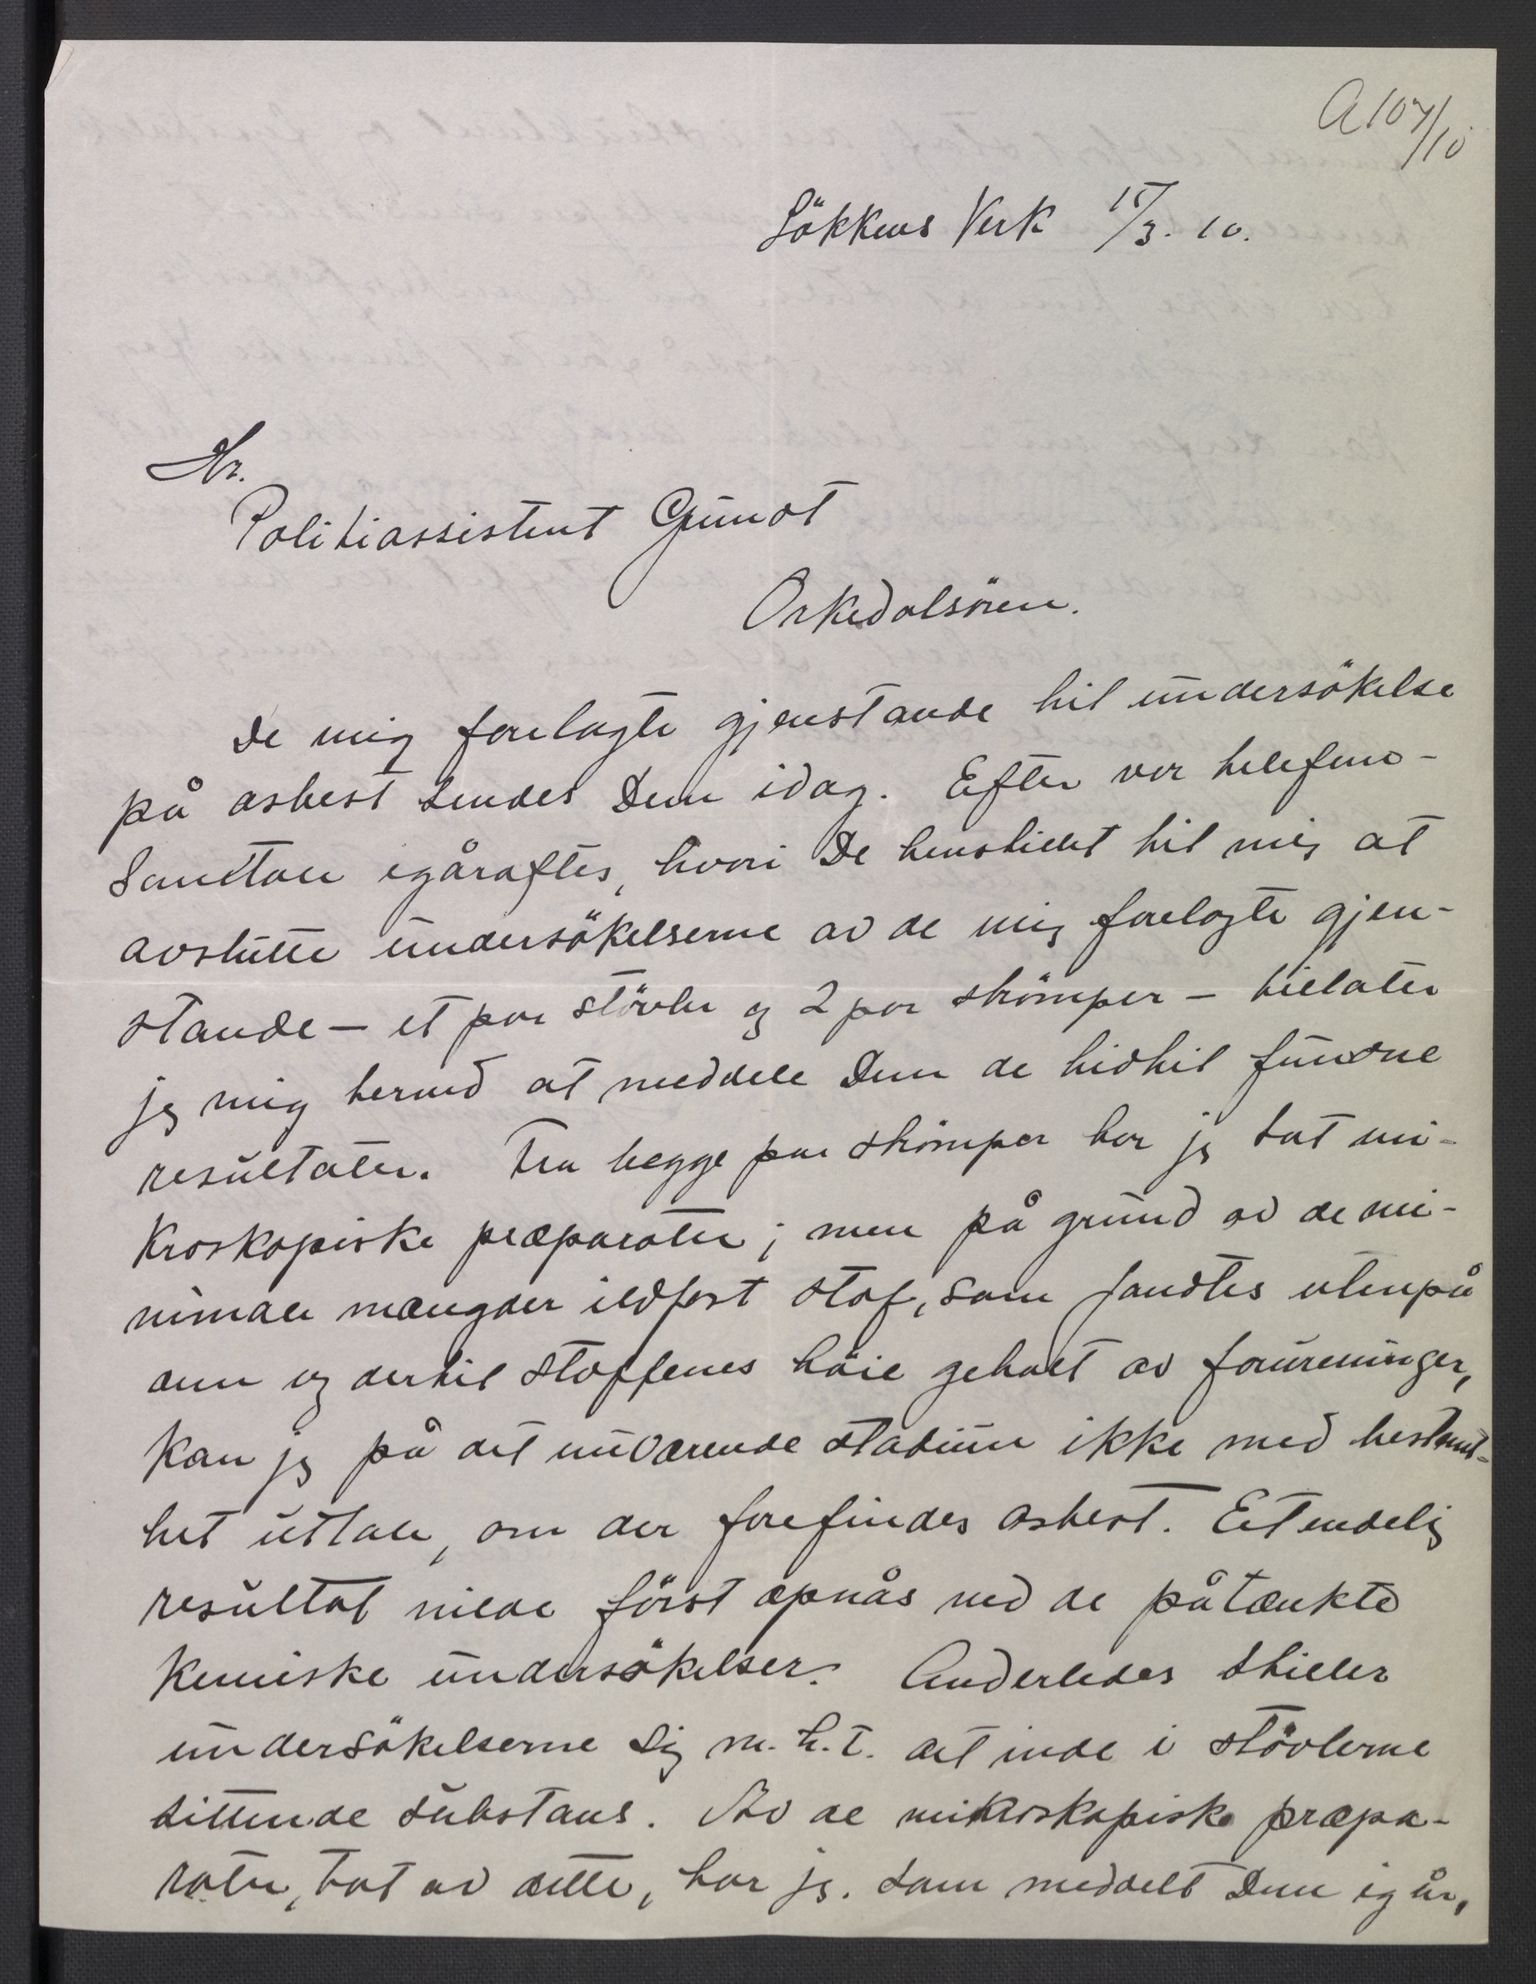 A 107/10
Lökkens Verk 15/3. 10.
Hr.
Politiassistent Gründt
Orkedalsören.
De mig forelagte gjenstande til undersökelse
på asbest sendes Dem idag. Efter vor telefon-
samtale igåraftes, hvori De henstillet til mig at
avslutte undersökelserne av de mig forelagte gjen-
stande – et par stövler og 2 par strömper – tillater
jeg mig herved at meddele Dem de hidtil fundne
resultater. Fra begge par strömper har jeg tat mi-
kroskopiske præparater; men på grund av de mi-
nimale mængder ildfast stof, som fandtes utenpå
dem og dertil stoffenes höie gehalt av forureninger,
kan jeg på det nuværende stadium ikke med bestemt-
het uttale, om der forefindes asbest. Et endelig
resultat vilde först opnås ved de påtænkte
kemiske undersökelser. Anderledes stiller
undersökelserne sig m. h. t. det inde i stövlerne
sittende substans. Av de mikroskopiske præpa-
rater, tat av dette, har jeg, som meddelt Dem igår,